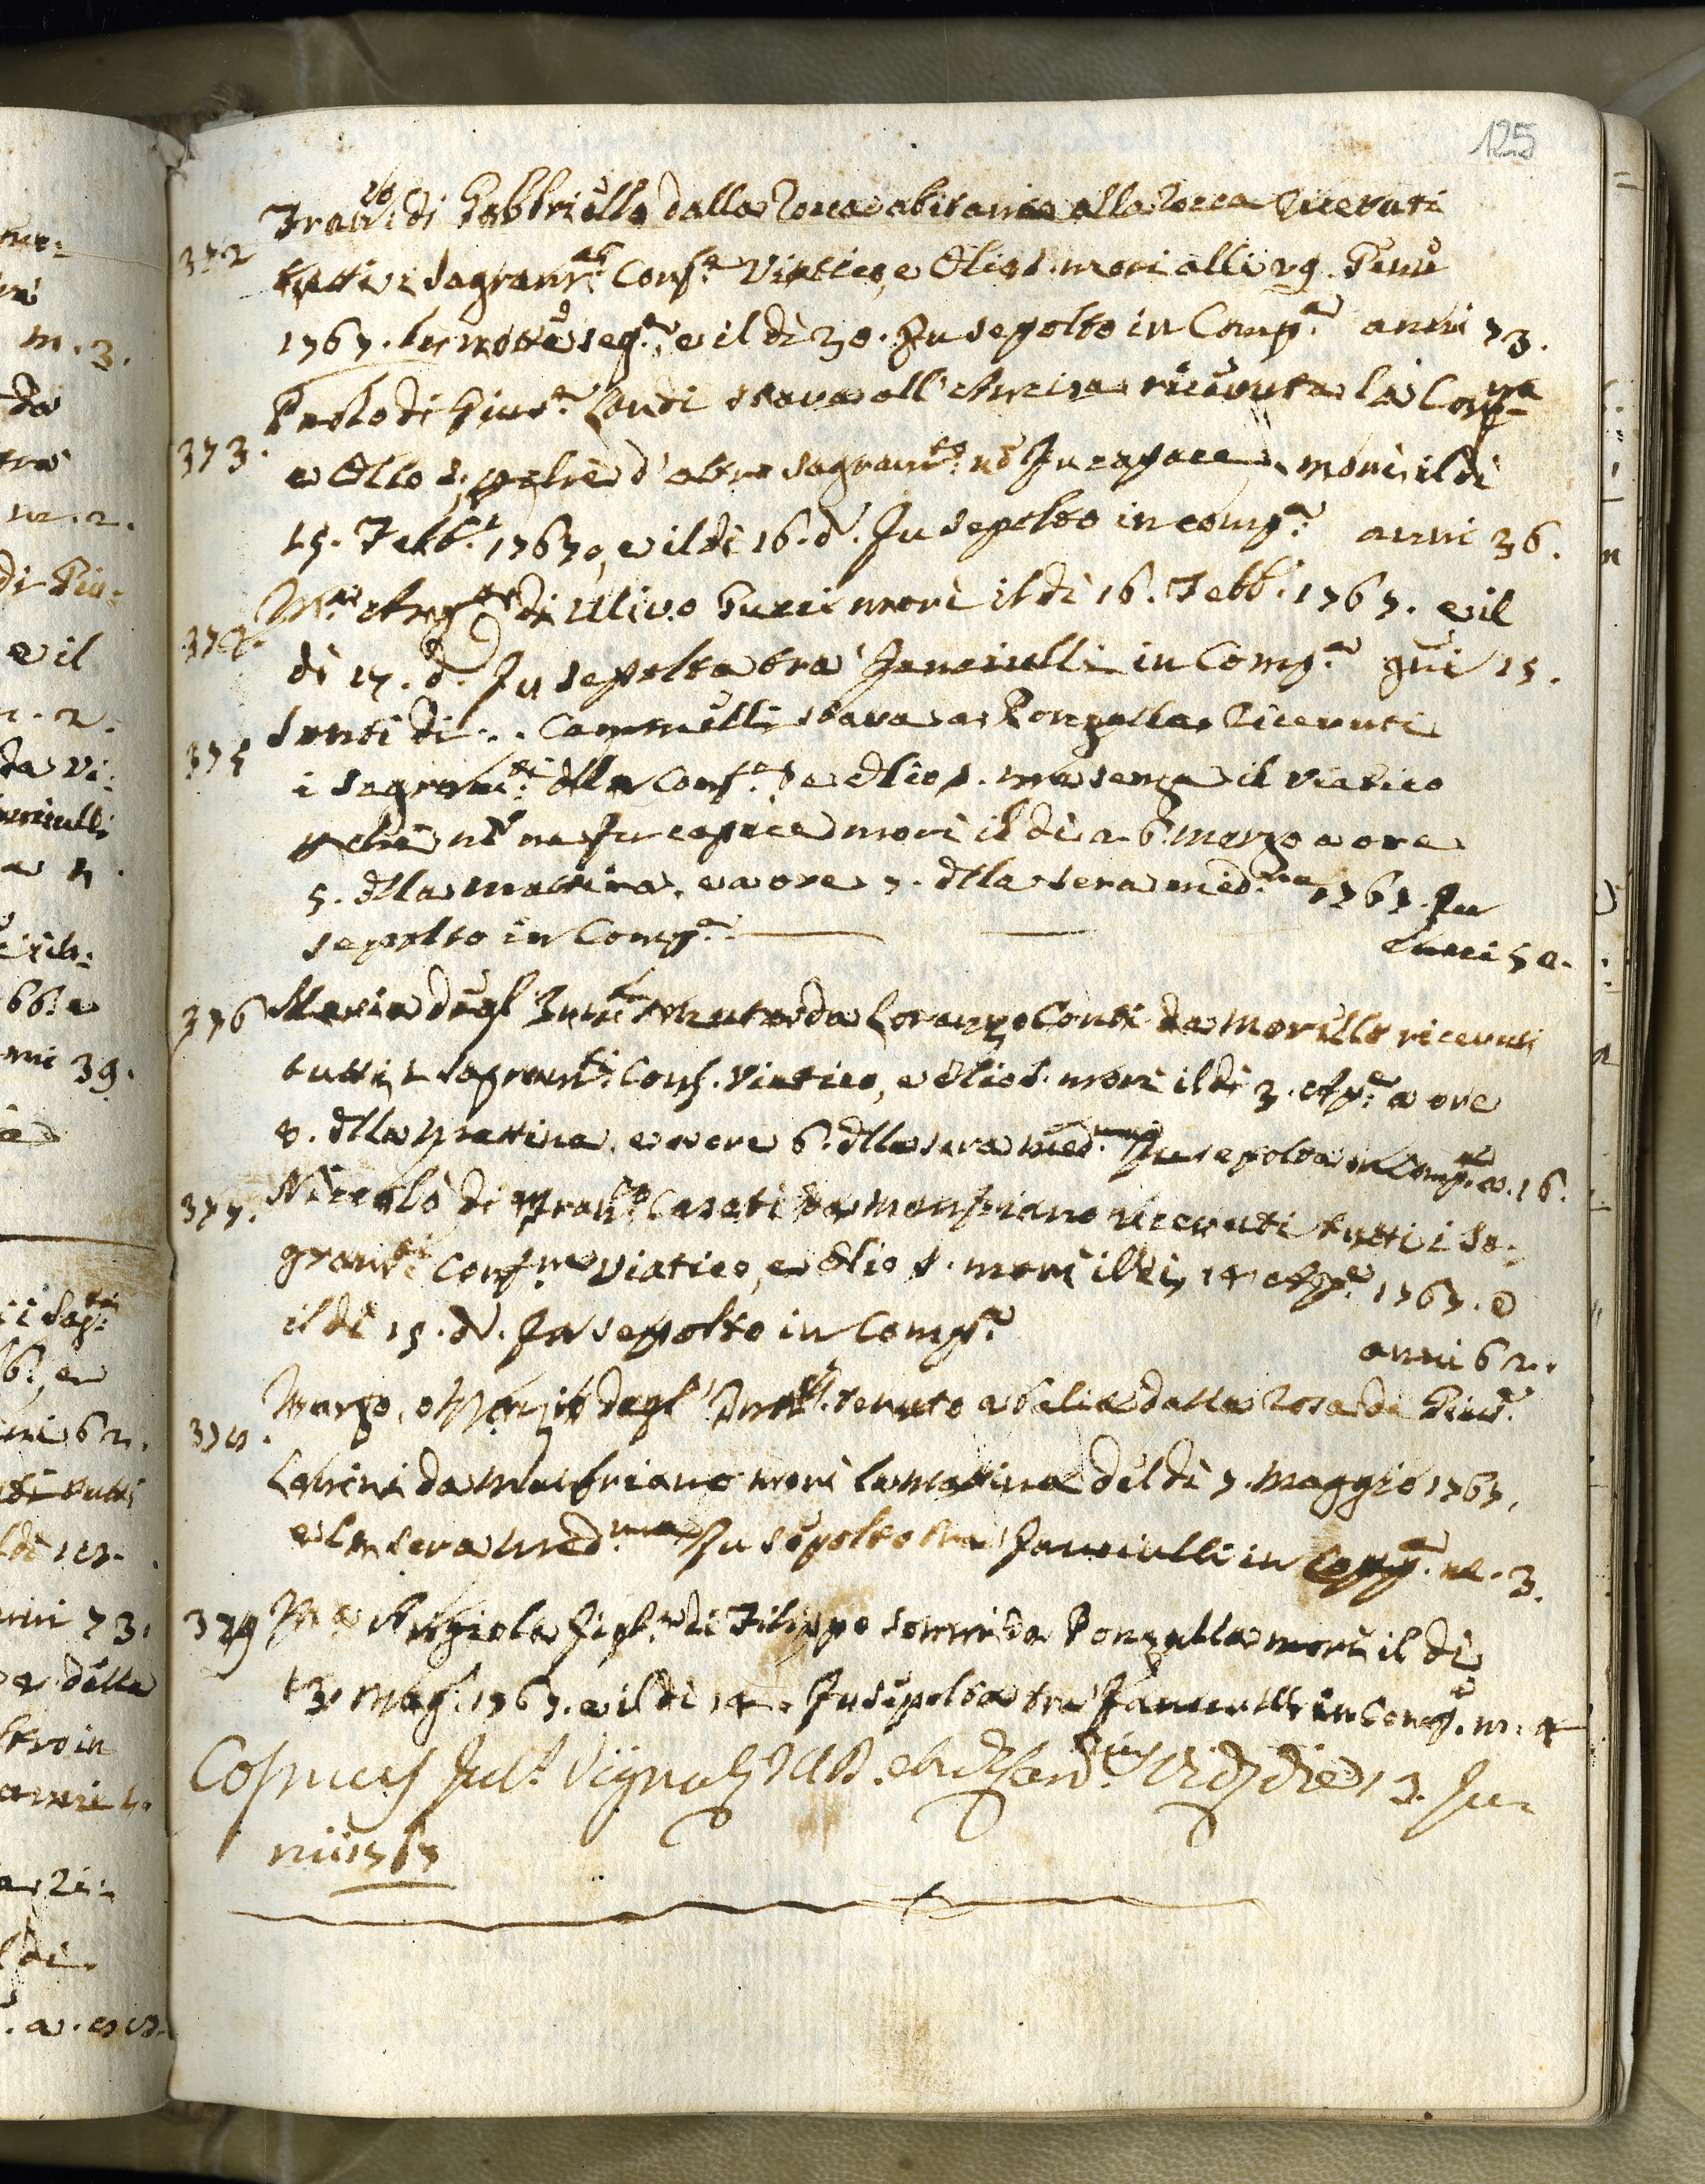 125
372 Fran.co di Gabbriello dalla Rocca abitante alla Rocca ricevuti
tutti i Sagram.ti Conf.e Viatico, e Olio S. morì alli 29. Genn.o
1767. la notte seg.e, e il dì 30. fu sepolto in Comp.a anni 73.
373. Paolo di Gius.e Landi stava all' Ancisa ricevuta la Conf.ne
e Ollo S. pchè d'altro sagram.to nõ fu capace, morì il dì
15. Febb. 1767, e il dì 16. d. fu sepolto in comp.a anni 36.
374. M.a di Ulivo Pucci morì il dì 16. Febb. 1767. e il
dì 17. d. fu sepolta tra' fanciulli in Comp.a gni 15.
375 Santi di ... Cammelli stava a Ronzalla ricevuti
i Sagram.ti dlla Conf.e e Olio S. ma senza il Viatico
pchè nõ ne fu capace morì il dì 26. marzo a ore
5. dlla mattina, e a ore 7. dlla sera med.ma 1767. fu
sepolto in Comp.a anni 50.
376 Maria degl' Inn.ti tenuta da Lorenzo Conti da Morello ricevuti
tutti i sagram.ti Conf. Viatico, e Olio S. morì il dì 3. Ap.e a ore
8. dlla mattina, e a ore 6. dlla sera med.ma fu sepolta in Comp.a a. 16.
377. Niccolò di Fran.co Casati da Monfriano ricevuti tutti i Sa-
gram.ti Conf.ne Viatico, e Olio S. morì il dì 14 Ap.e 1767. e
il dì 15. d. fu sepolto in Comp.a anni 62.
378. Marzo, degl' Inn.ti tenuto a balia dalla Rosa di Gius.e
da Monfriano morì la mattina del dì 7. Maggio 1767,
e la sera med.ma fu sepolto tra' fanciulli in Comp.a m. 3.
379 M.a Angiola figl.a di Filippo da Ronzalla morì il dì
13. Mag. 1767. e il dì 14. fu sepolta tra' fanciulli in Comp.a m. 4
Cosmus Jul. Vignali die 13. Ju-
nii 1767